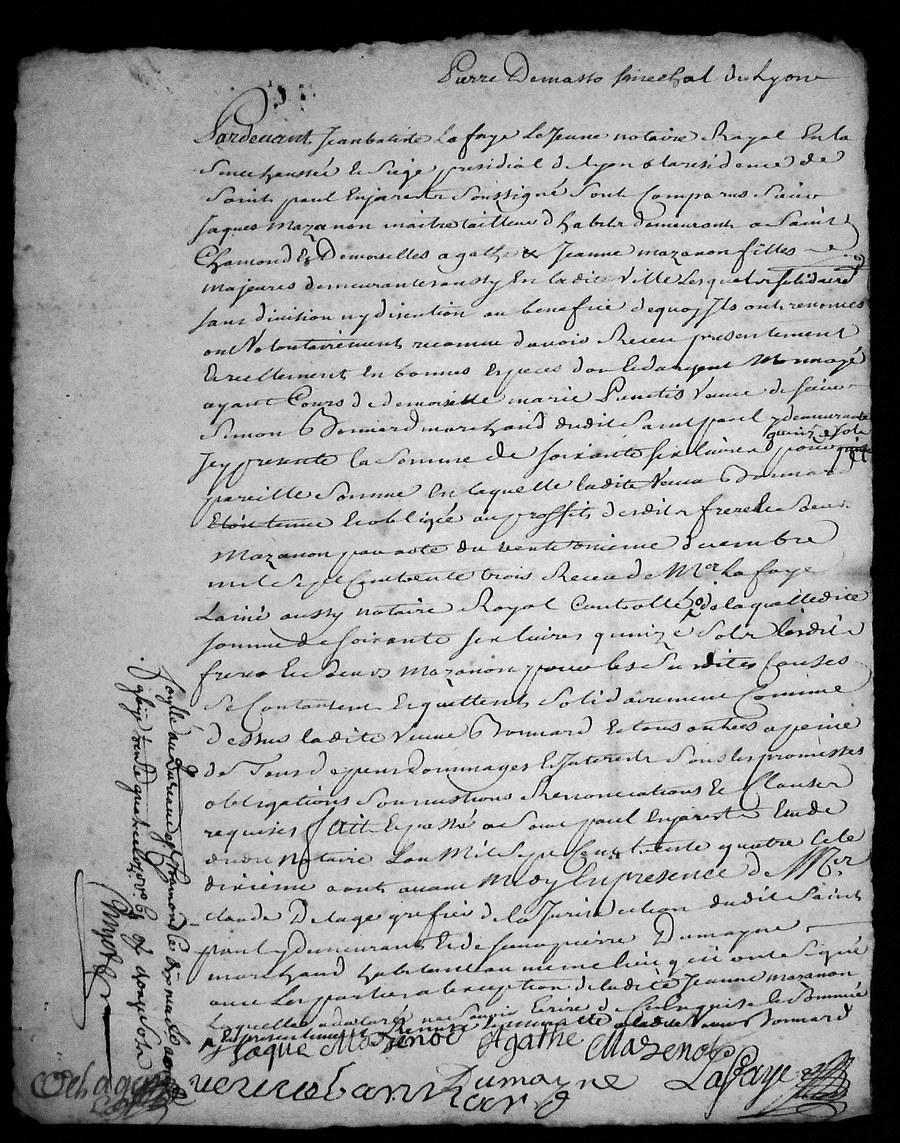 Pierre Demasso senechal de Lyon
Pardevant Jean batiste La faye Le Jeune notaire Royal En la
Senechaussée & Siege presidial de Lyon a la residence de
Saint paul Enjarest Soussigné Sont Comparus Sieur
Jaques Mazanon maitre tailleur d'habits demeurant a Saint
Chamond & Demoiselles agathe & Jeanne mazanon filles
majeures demeurantes aussy En ladite Ville Lesquels solidairement
sans division ny discution au benefice dequoy Ils ont renonces
ont Volontairement reconnu d'avoir Receu presentement
Et reellement En bonnes Especes d'or & d'argent Monnayé
ayant Cours de demoiselle marie Veuve de sieur
Simon Bonnard marchand dudit Saint paul y demeurante
Icy presente la Somme de soixante six livres quinze sols pour
pareille Somme En laquelle ladite Veuve Bonnard
Etoit tenue & obligée au proffit desdits frere & Seurs
Mazanon par acte du decembre
mil Sept Cent trente trois Receu de Mer La faye
Lainé aussy notaire Royal Controllé de laquelle dite
somme de soixante six livres quinze Sols lesdits
frere & Seurs Mazanon pour les Susdites Causes
Se Contantent & quittent Solidairement Comme
dessus ladite Veuve Bonnard & tous autres a peine
de Tous depens Dommages & Interets Sous les promesses
obligations Soumissions Renonciations & Clauses
requises fait & passé a Saint paul Enjarest Etude
dudit Notaire L'an Mil Sept Cent trente quatre & le
dixieme aout avant Midy En presence de Mer
claude Delage grefier de la Jurisdiction dudit Saint
paul y demeurant & de Jean pierre Dumagne
marchand habitant au meme lieu qui ont Signé
avec Les parties a l'exception de ladite Jeanne mazanon
Laquelle a declaré ne Scavoir Ecrire de ce Enquise & Sommée
a ladite Veuve Bonnard
Jaque Mazenod Agathe Mazenod
Delage Dumagne Laffaye
Controllé au Bureau de St Chamond le